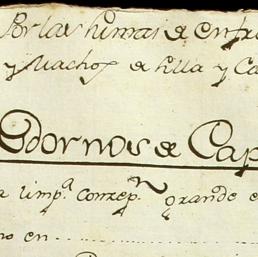 Por las humas de entra
y Machos de silla y Ca
Adornos de Cap
a limp.ª concep.ⁿ grande e
no en